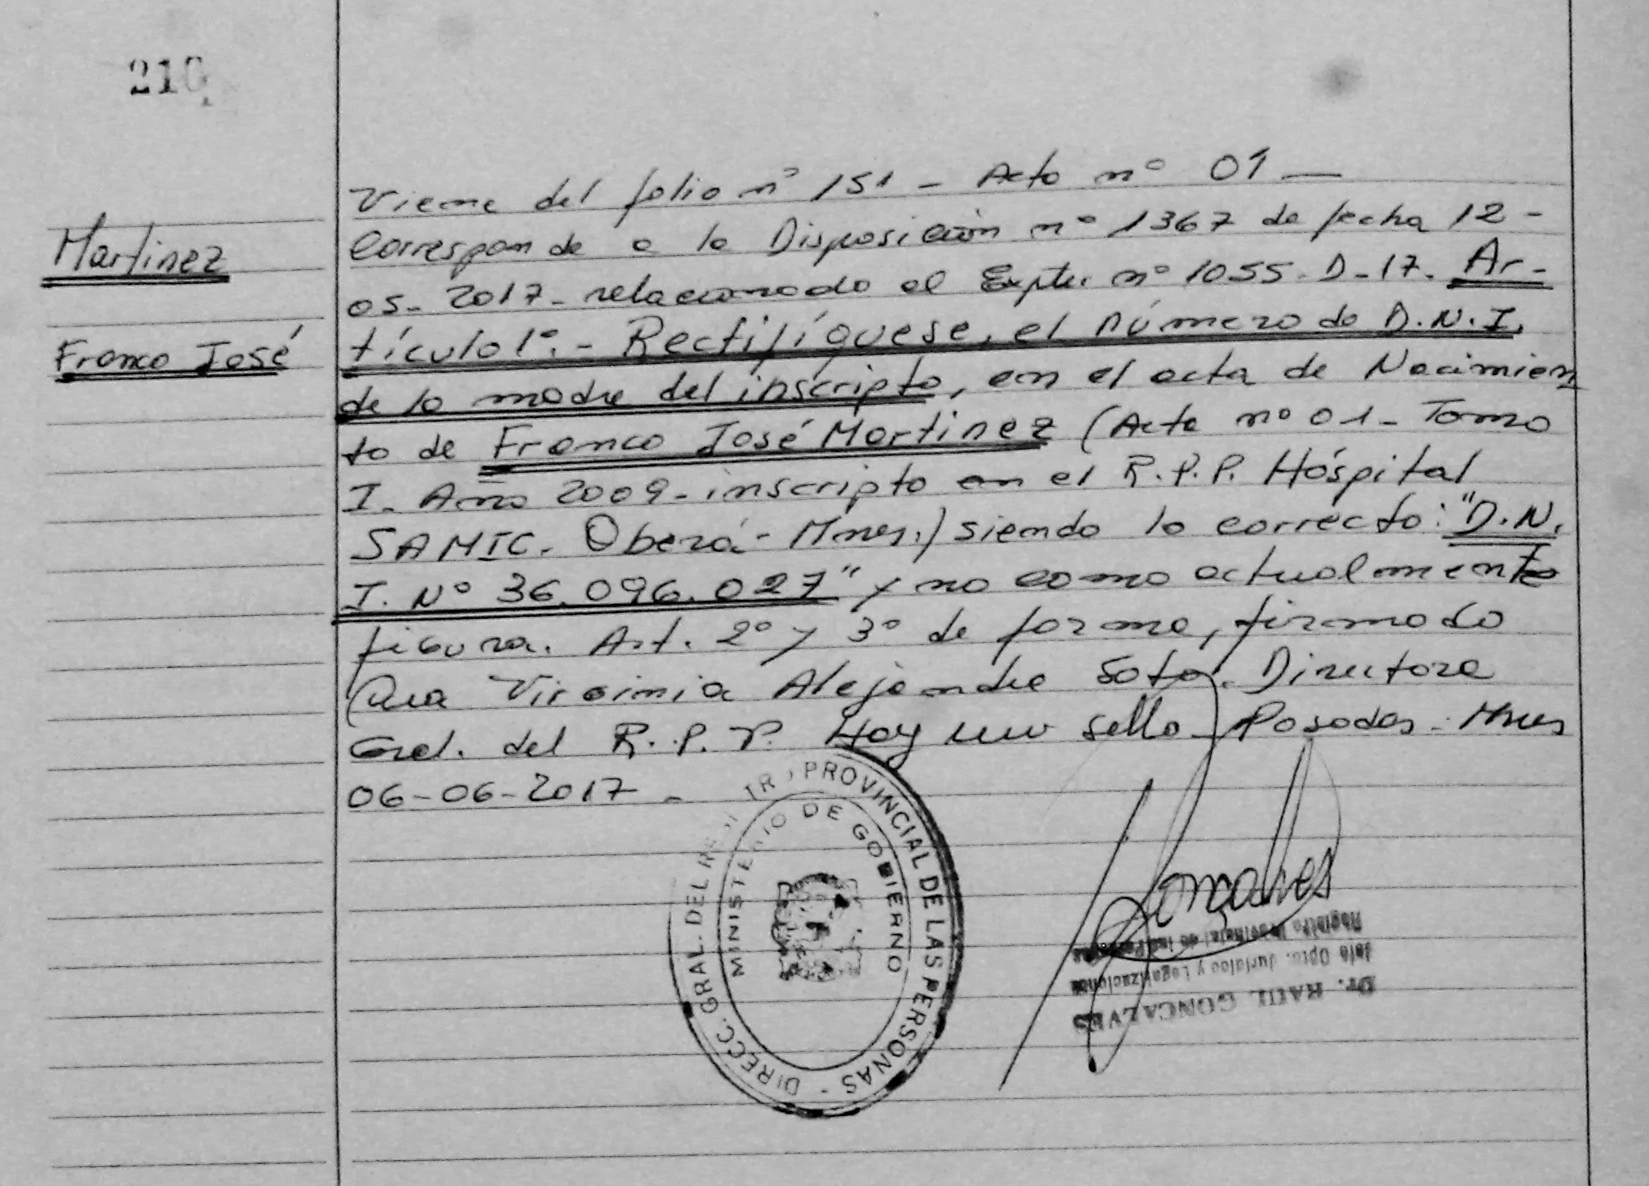 210
Martinez
Franco José
Viene del folio nº 151 - Acta nº 01 —
Corresponde a la Disposición nº 1367 de fecha 12-
05-2017- relacionado al Expte. nº 1055-D-17. Ar-
tículo 1º.- Rectifíquese, el número de D.N.I.
de la madre del inscripto, en el acta de Nacimien
to de Franco José Martinez (Acta nº 01- Tomo
I- Año 2009- inscripto en el R.P.P. Hóspital
SAMIC. Oberá- Mnes.) siendo lo correcto: "D.N.
I. Nº 36.096.027" y no como actualmente
figura. Art. 2º y 3º de forma, firmado
Virginia Alejandra Soto. Directora
Gral. del R.P.P. Hay un sello- Posadas- Mnes
06-06-2017-
DIRECC. GRAL. DEL REGISTRO PROVINCIAL DE LAS PERSONAS -
MINISTERIO DE GOBIERNO
Gonçalves
Dr. RAUL GONCALVES
Jefe Dpto. Jurídico y Legalizaciones
Registro Provincial de las Personas